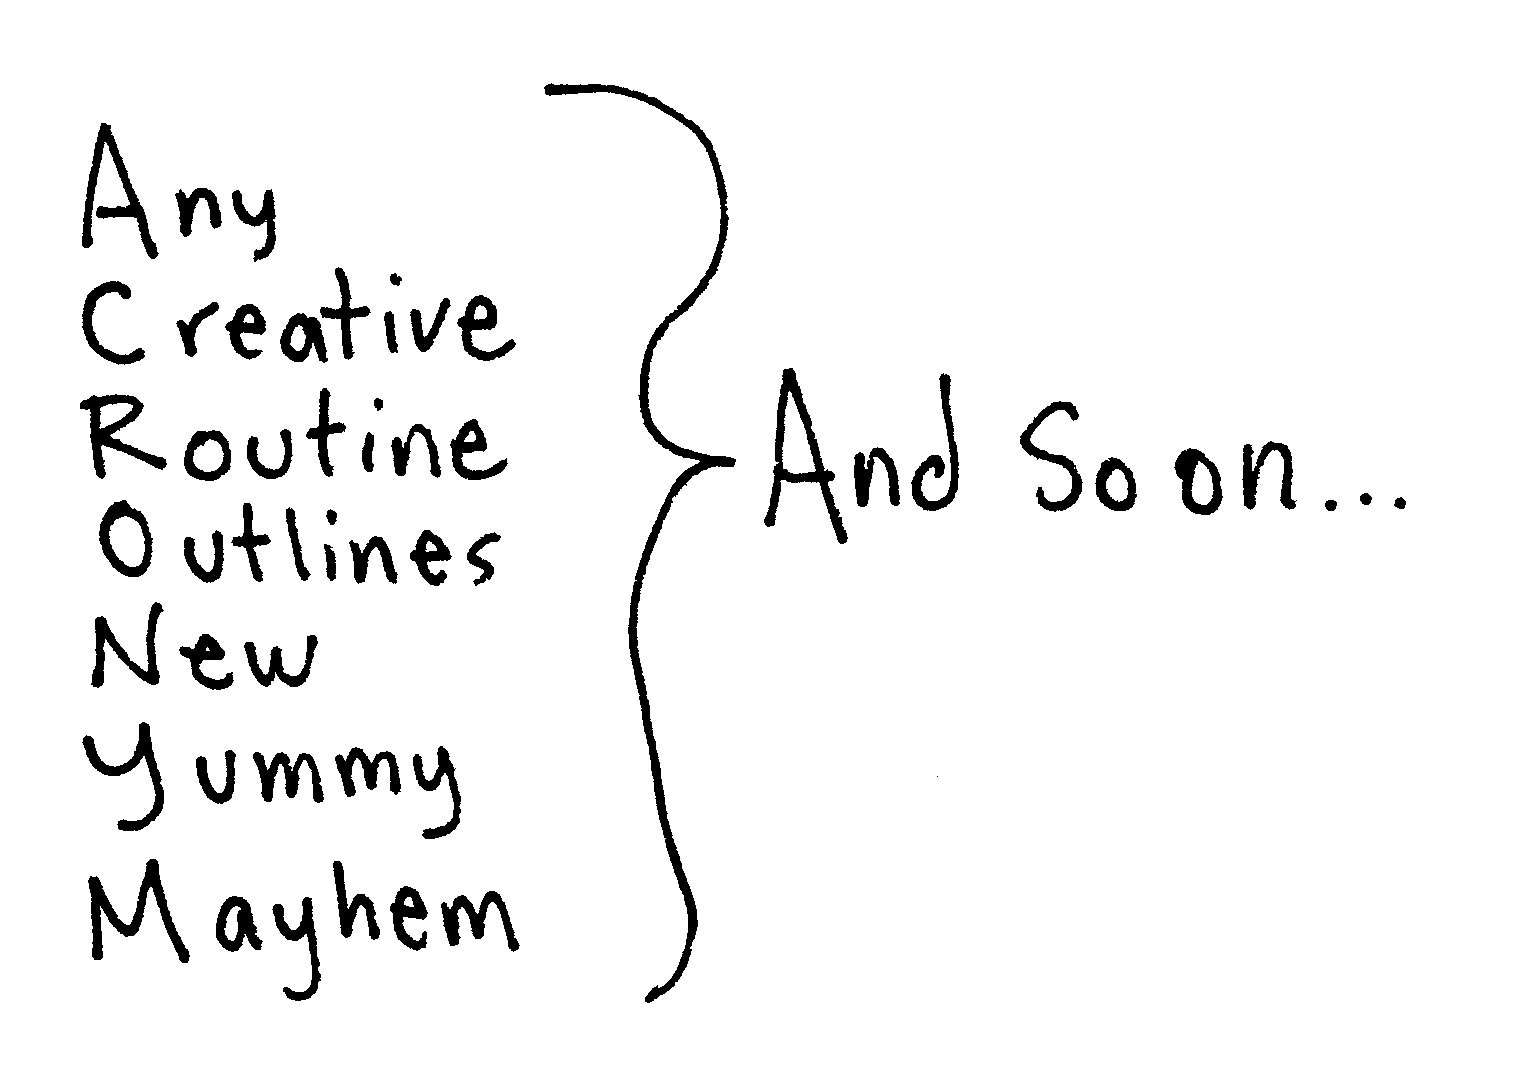 Any
Creative
Routine
Outlines
New
Yummy
Mayhem
And So on...